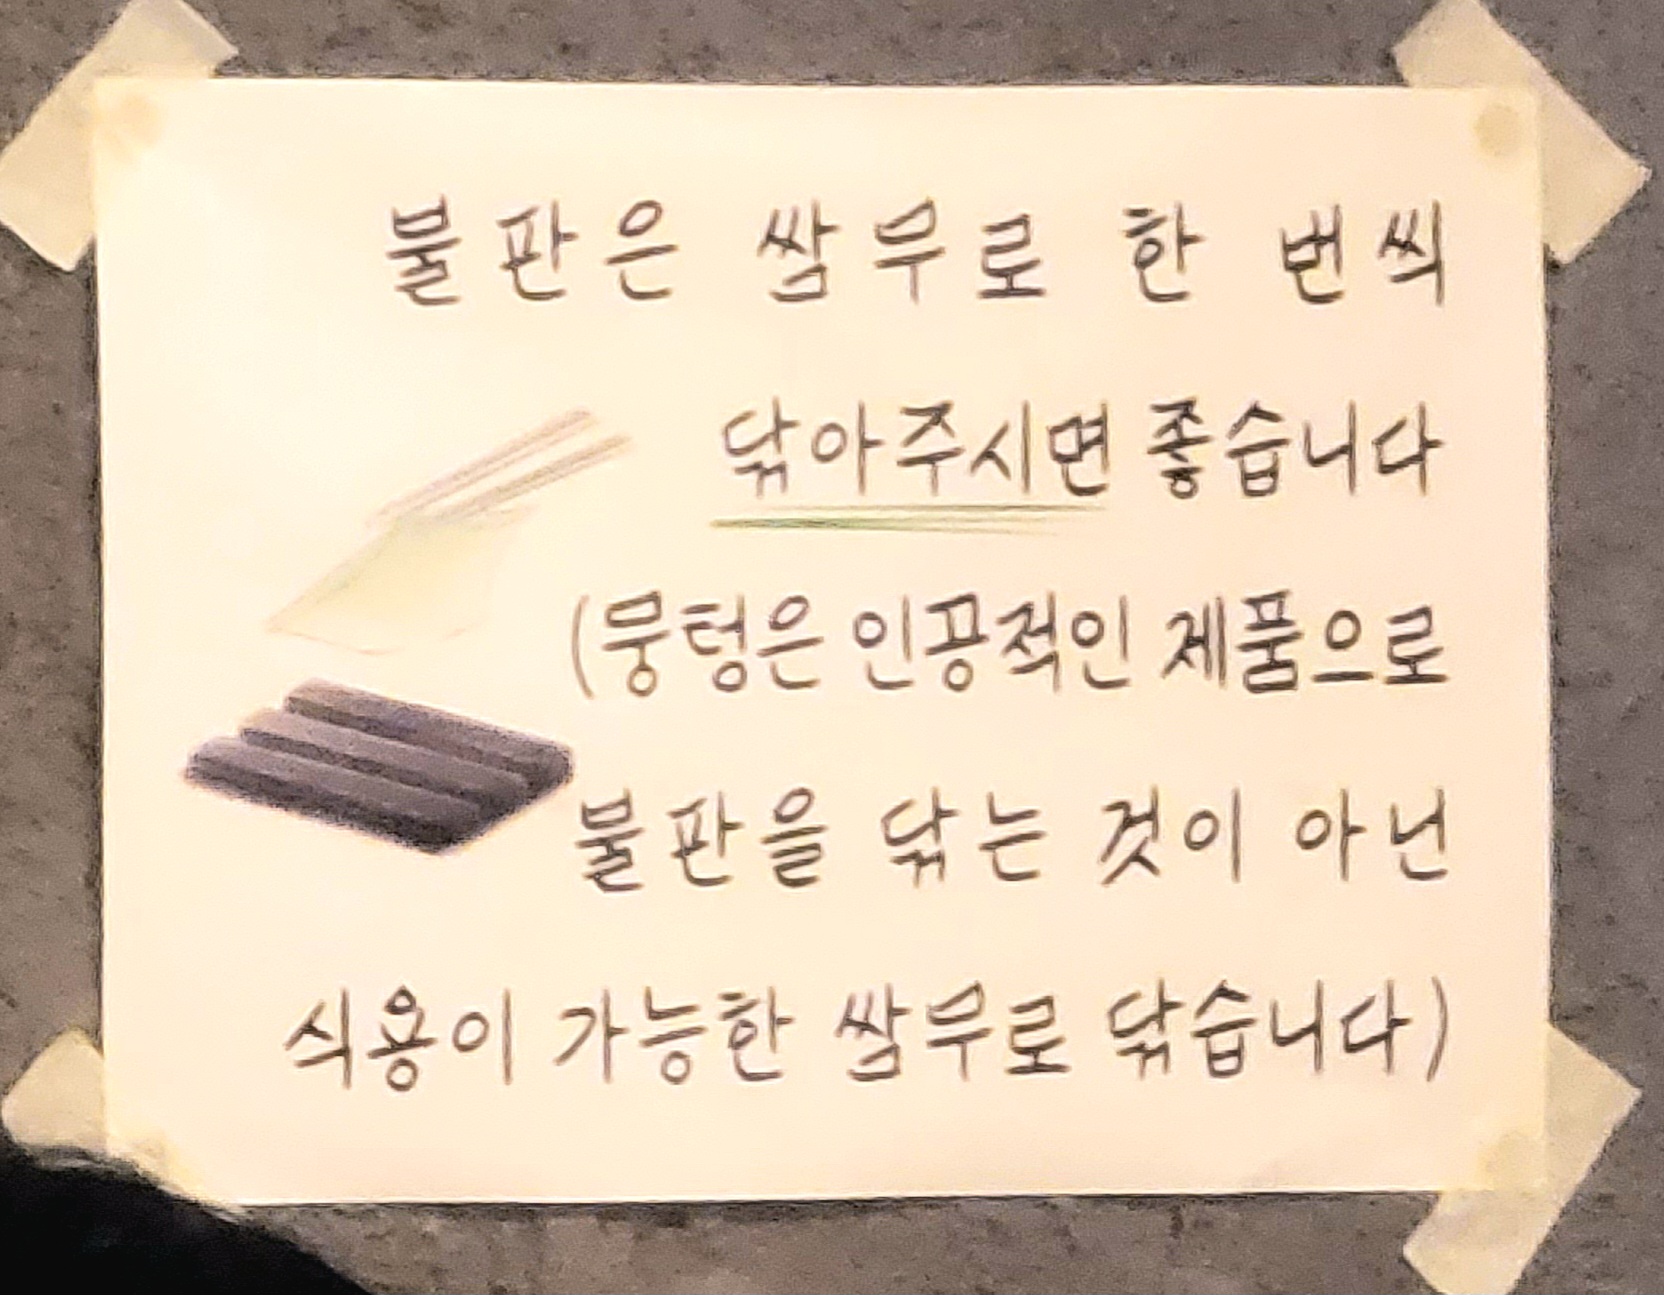 불판은 쌈무로 한 번씩
닦아주시면 좋습니다
(뭉텅은 인공적인 제품으로
불판을 닦는 것이 아닌
식용이 가능한 쌈무로 닦습니다)